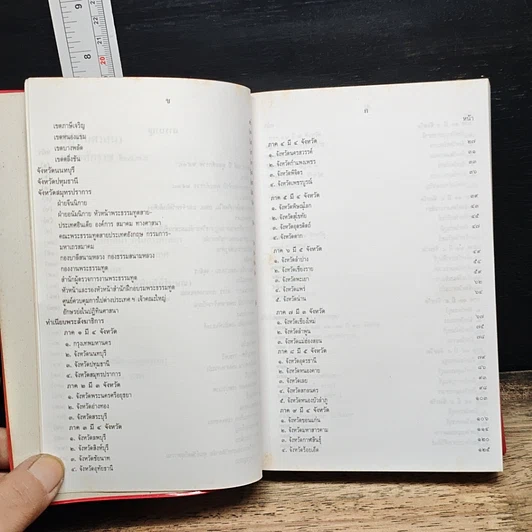 ข
เขตภาษีเจริญ
เขตหนองแขม
เขตบางพลัด
เขตตลิ่งชัน
จังหวัดนนทบุรี
จังหวัดปทุมธานี
จังหวัดสมุทรปราการ
ฝ่ายจีนนิกาย
ฝ่ายอนัมนิกาย หัวหน้าพระธรรมทูตสาย-
ประเทศอินเดีย องค์การ สมาคม ทางศาสนา
คณะพระธรรมทูตสายประเทศอังกฤษ กรรมการ-
มหาเถรสมาคม
กองบาลีสนามหลวง กองธรรมสนามหลวง
กองงานพระธรรมทูต
สำนักผู้ตรวจการงานพระธรรมทูต
หัวหน้าและรองหัวหน้าสำนักฝึกอบรมพระธรรมทูต
ศูนย์ควบคุมการไปต่างประเทศ ฯ เจ้าคณะใหญ่
อักษรย่อในปฏิทินศาสนา
ทำเนียบพระสังฆาธิการ
ภาค ๑ มี ๔ จังหวัด
๑. กรุงเทพมหานคร
๒. จังหวัดนนทบุรี
๓. จังหวัดปทุมธานี
๔. จังหวัดสมุทรปราการ
ภาค ๒ มี ๓ จังหวัด
๑. จังหวัดพระนครศรีอยุธยา
๒. จังหวัดอ่างทอง
๓. จังหวัดสระบุรี
ภาค ๓ มี ๔ จังหวัด
๑. จังหวัดลพบุรี
๒. จังหวัดสิงห์บุรี
๓. จังหวัดชัยนาท
๔. จังหวัดอุทัยธานี
ค
หน้า
ภาค ๔ มี ๔ จังหวัด
๑. จังหวัดนครสวรรค์
๒. จังหวัดกำแพงเพชร
๓. จังหวัดพิจิตร
๔. จังหวัดเพชรบูรณ์
ภาค ๕ มี ๔ จังหวัด
๑. จังหวัดพิษณุโลก
๒. จังหวัดสุโขทัย
๓. จังหวัดอุตรดิตถ์
๔. จังหวัดตาก
ภาค ๖ มี ๕ จังหวัด
๑. จังหวัดลำปาง
๒. จังหวัดเชียงราย
๓. จังหวัดพะเยา
๔. จังหวัดแพร่
๕. จังหวัดน่าน
ภาค ๗ มี ๓ จังหวัด
๑. จังหวัดเชียงใหม่
๒. จังหวัดลำพูน
๓. จังหวัดแม่ฮ่องสอน
ภาค ๘ มี ๕ จังหวัด
๑. จังหวัดอุดรธานี
๒. จังหวัดหนองคาย
๓. จังหวัดเลย
๔. จังหวัดสกลนคร
๕. จังหวัดหนองบัวลำภู
ภาค ๙ มี ๔ จังหวัด
๑. จังหวัดขอนแก่น ๑๐๖
๒. จังหวัดมหาสารคาม
๓. จังหวัดกาฬสินธุ์ ๑๒๐
๔. จังหวัดร้อยเอ็ด ๑๒๕